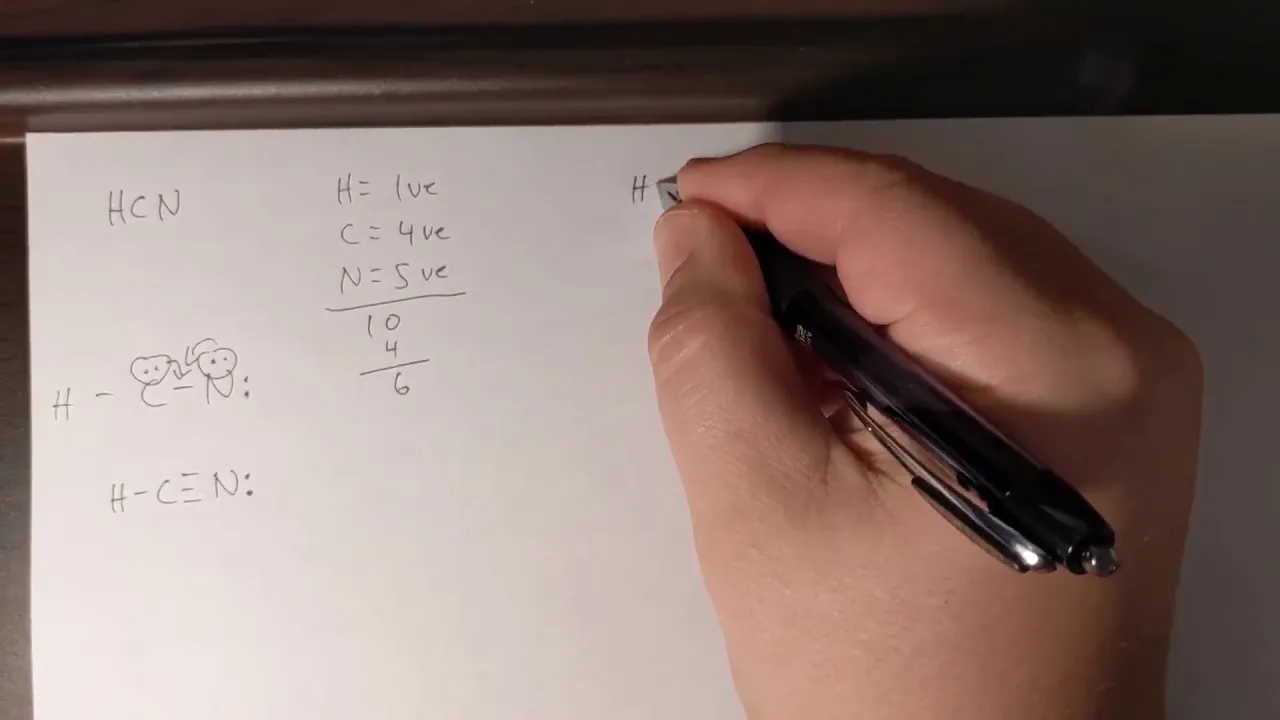 HCN
H = 1ve
C = 4ve
N = 5ve
10
4
6
H - C - N:
H-C≡N:
H